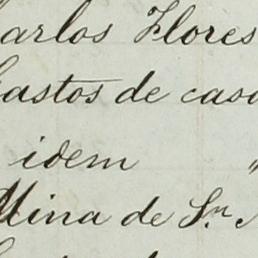 Carlos Flores
Gastos de casa
idem "
Mina de Sr.